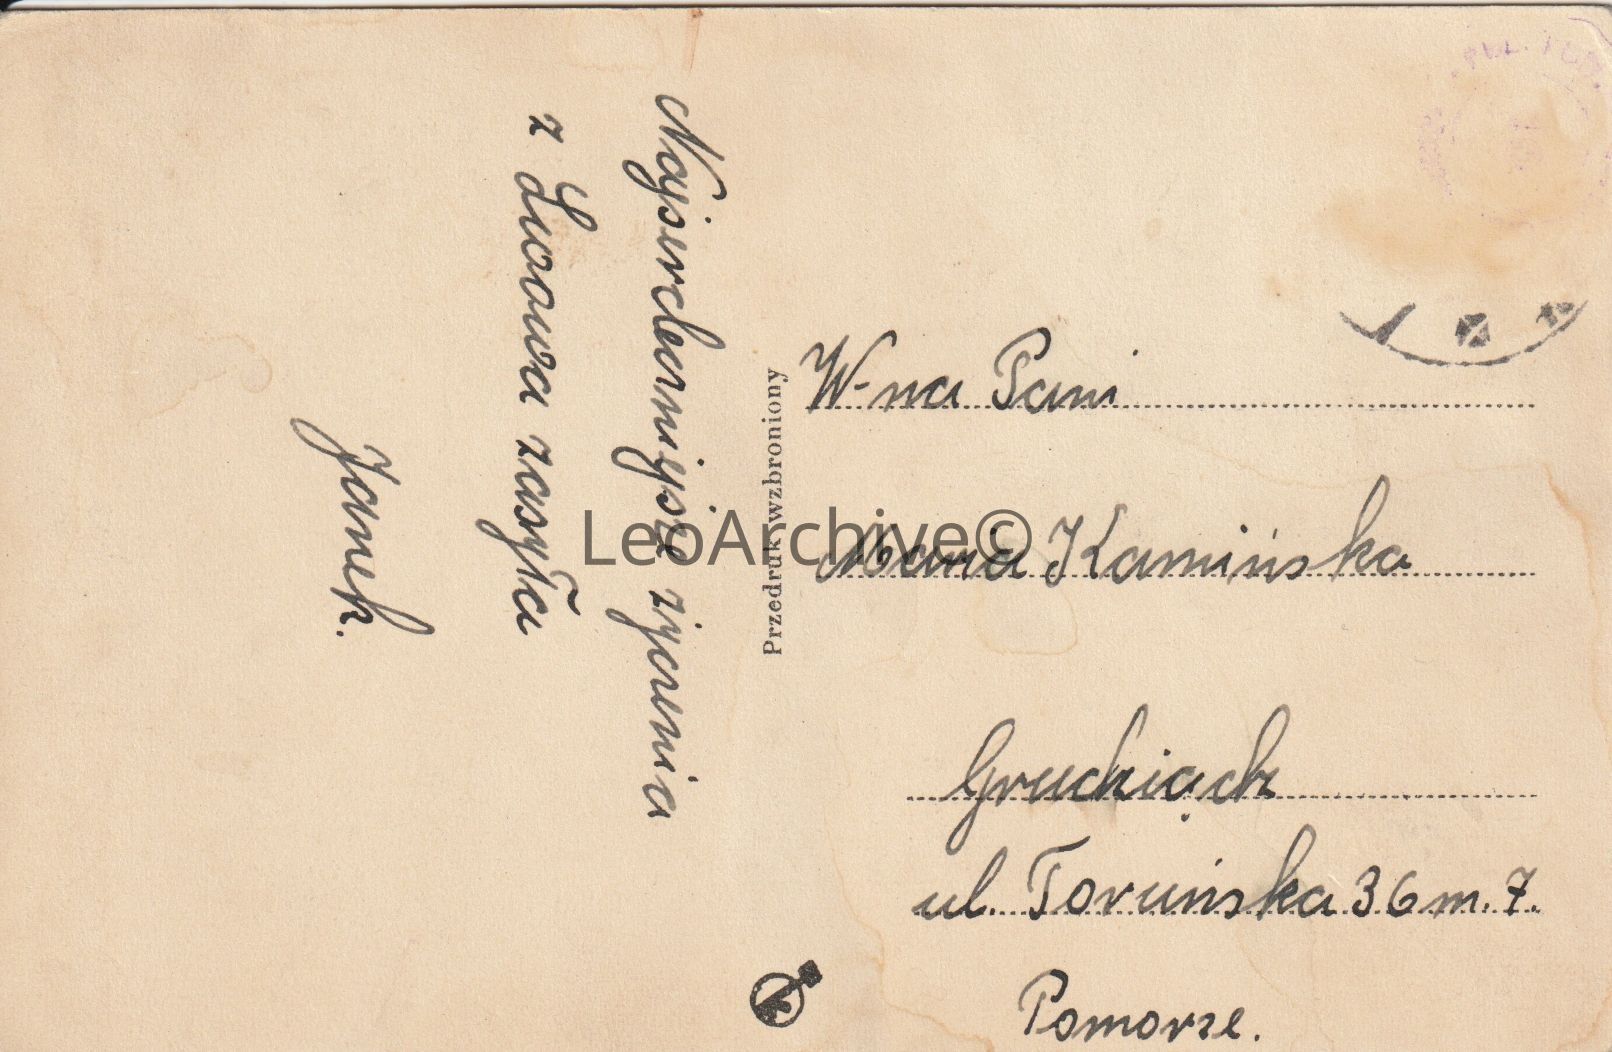 Najserdeczniejsze życzenia
z Lwowa zasyła
Janek.
Przedruk wzbroniony
W-na Pani
Maria Kamińska
Grudziądz
ul. Toruńska 36 m. 7.
Pomorze.
LeoArchive©